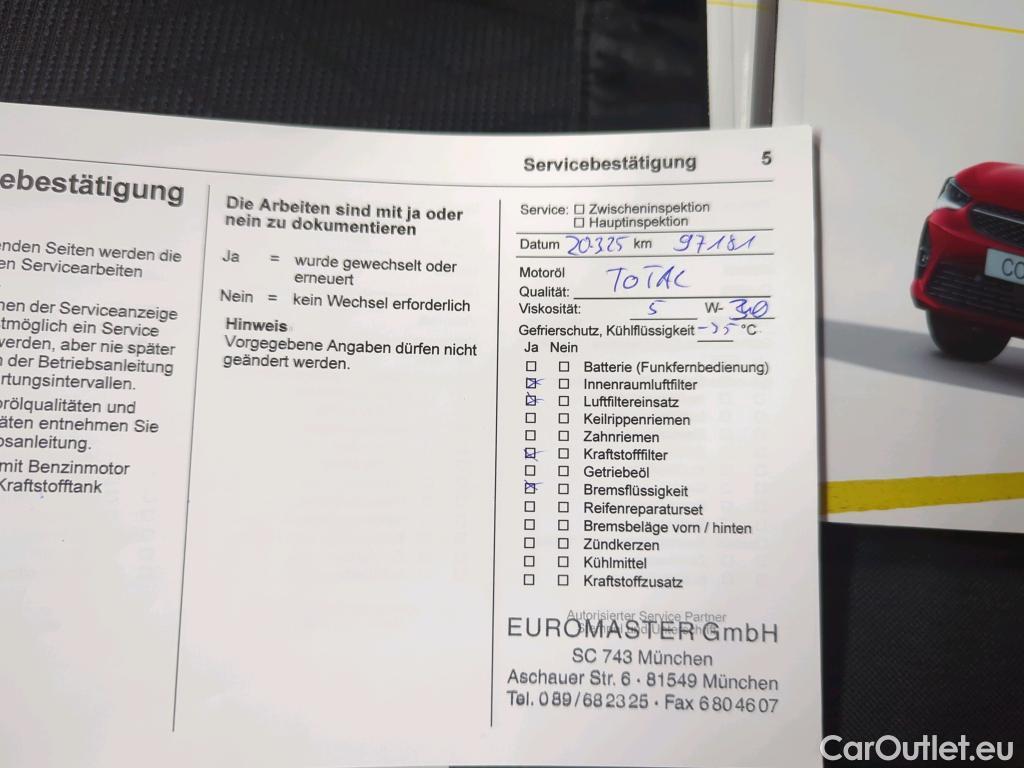 ebestätigung
enden Seiten werden die
en Servicearbeiten
nen der Serviceanzeige
stmöglich ein Service
werden, aber nie später
n der Betriebsanleitung
rtungsintervallen.
orölqualitäten und
äten entnehmen Sie
bsanleitung.
mit Benzinmotor
Kraftstofftank
Die Arbeiten sind mit ja oder
nein zu dokumentieren
Ja = wurde gewechselt oder
erneuert
Nein = kein Wechsel erforderlich
Hinweis
Vorgegebene Angaben dürfen nicht
geändert werden.
Servicebestätigung 5
Service: ☐ Zwischeninspektion
☐ Hauptinspektion
Datum 20.3.25 km 97181
Motoröl
Qualität: TOTAL
Viskosität: 5 W- 30
Gefrierschutz, Kühlflüssigkeit °C
Ja Nein
☐ ☐ Batterie (Funkfernbedienung)
☒ ☐ Innenraumluftfilter
☒ ☐ Luftfiltereinsatz
☐ ☐ Keilrippenriemen
☐ ☐ Zahnriemen
☒ ☐ Kraftstofffilter
☐ ☐ Getriebeöl
☒ ☐ Bremsflüssigkeit
☐ ☐ Reifenreparaturset
☐ ☐ Bremsbeläge vorn / hinten
☐ ☐ Zündkerzen
☐ ☐ Kühlmittel
☐ ☐ Kraftstoffzusatz
Autorisierter Service Partner
EUROMASTER GmbH
SC 743 München
Aschauer Str. 6 · 81549 München
Tel. 089/682325 · Fax 6804607
CO
CarOutlet.eu